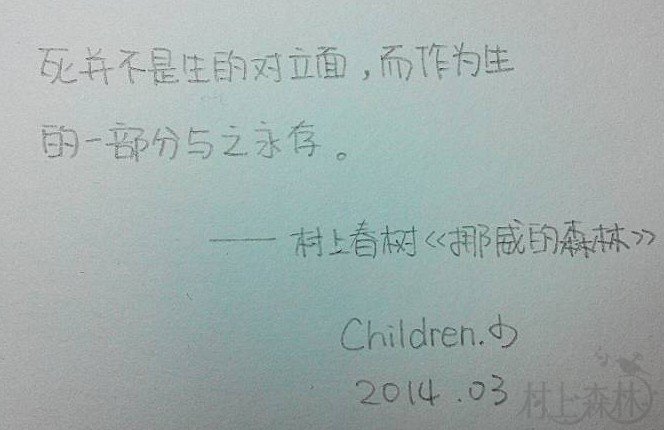 死并不是生的对立面，而作为生
的一部分与之永存。
—— 村上春树《挪威的森林》
Children.的
2014.03
村上森林